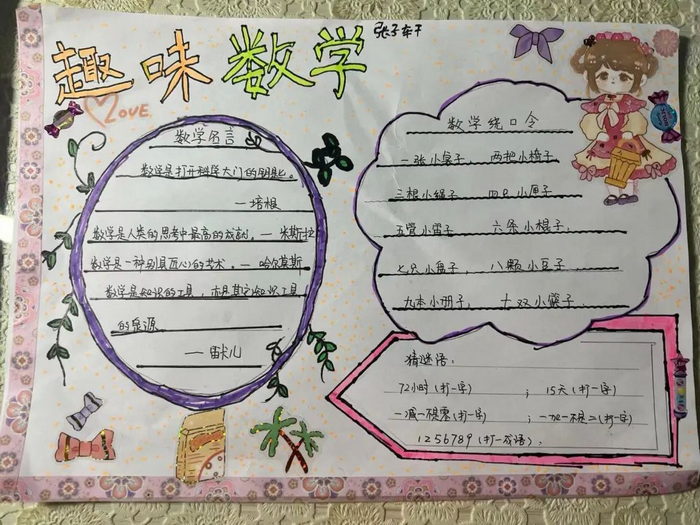 趣味数学
LOVE
数学名言
数学是打开科学大门的钥匙。
——培根
数学是人类的思考中最高的成就，—米斯拉
数学是一种别具匠心的艺术。—哈尔莫斯
数学是知识的工具，亦是其它知识工具
的泉源
—笛卡儿
数学绕口令
一张小桌子， 两把小椅子
三根小绳子 四只小匣子
五管小笛子 六条小棍子，
七只小盘子， 八颗小豆子
九本小册子， 十双小筷子．
猜谜语：
72小时(打一字) ； 15天(打一字)
一减一不是零(打一字) ；一加一不是二(打一字)
1256789(打一成语)；